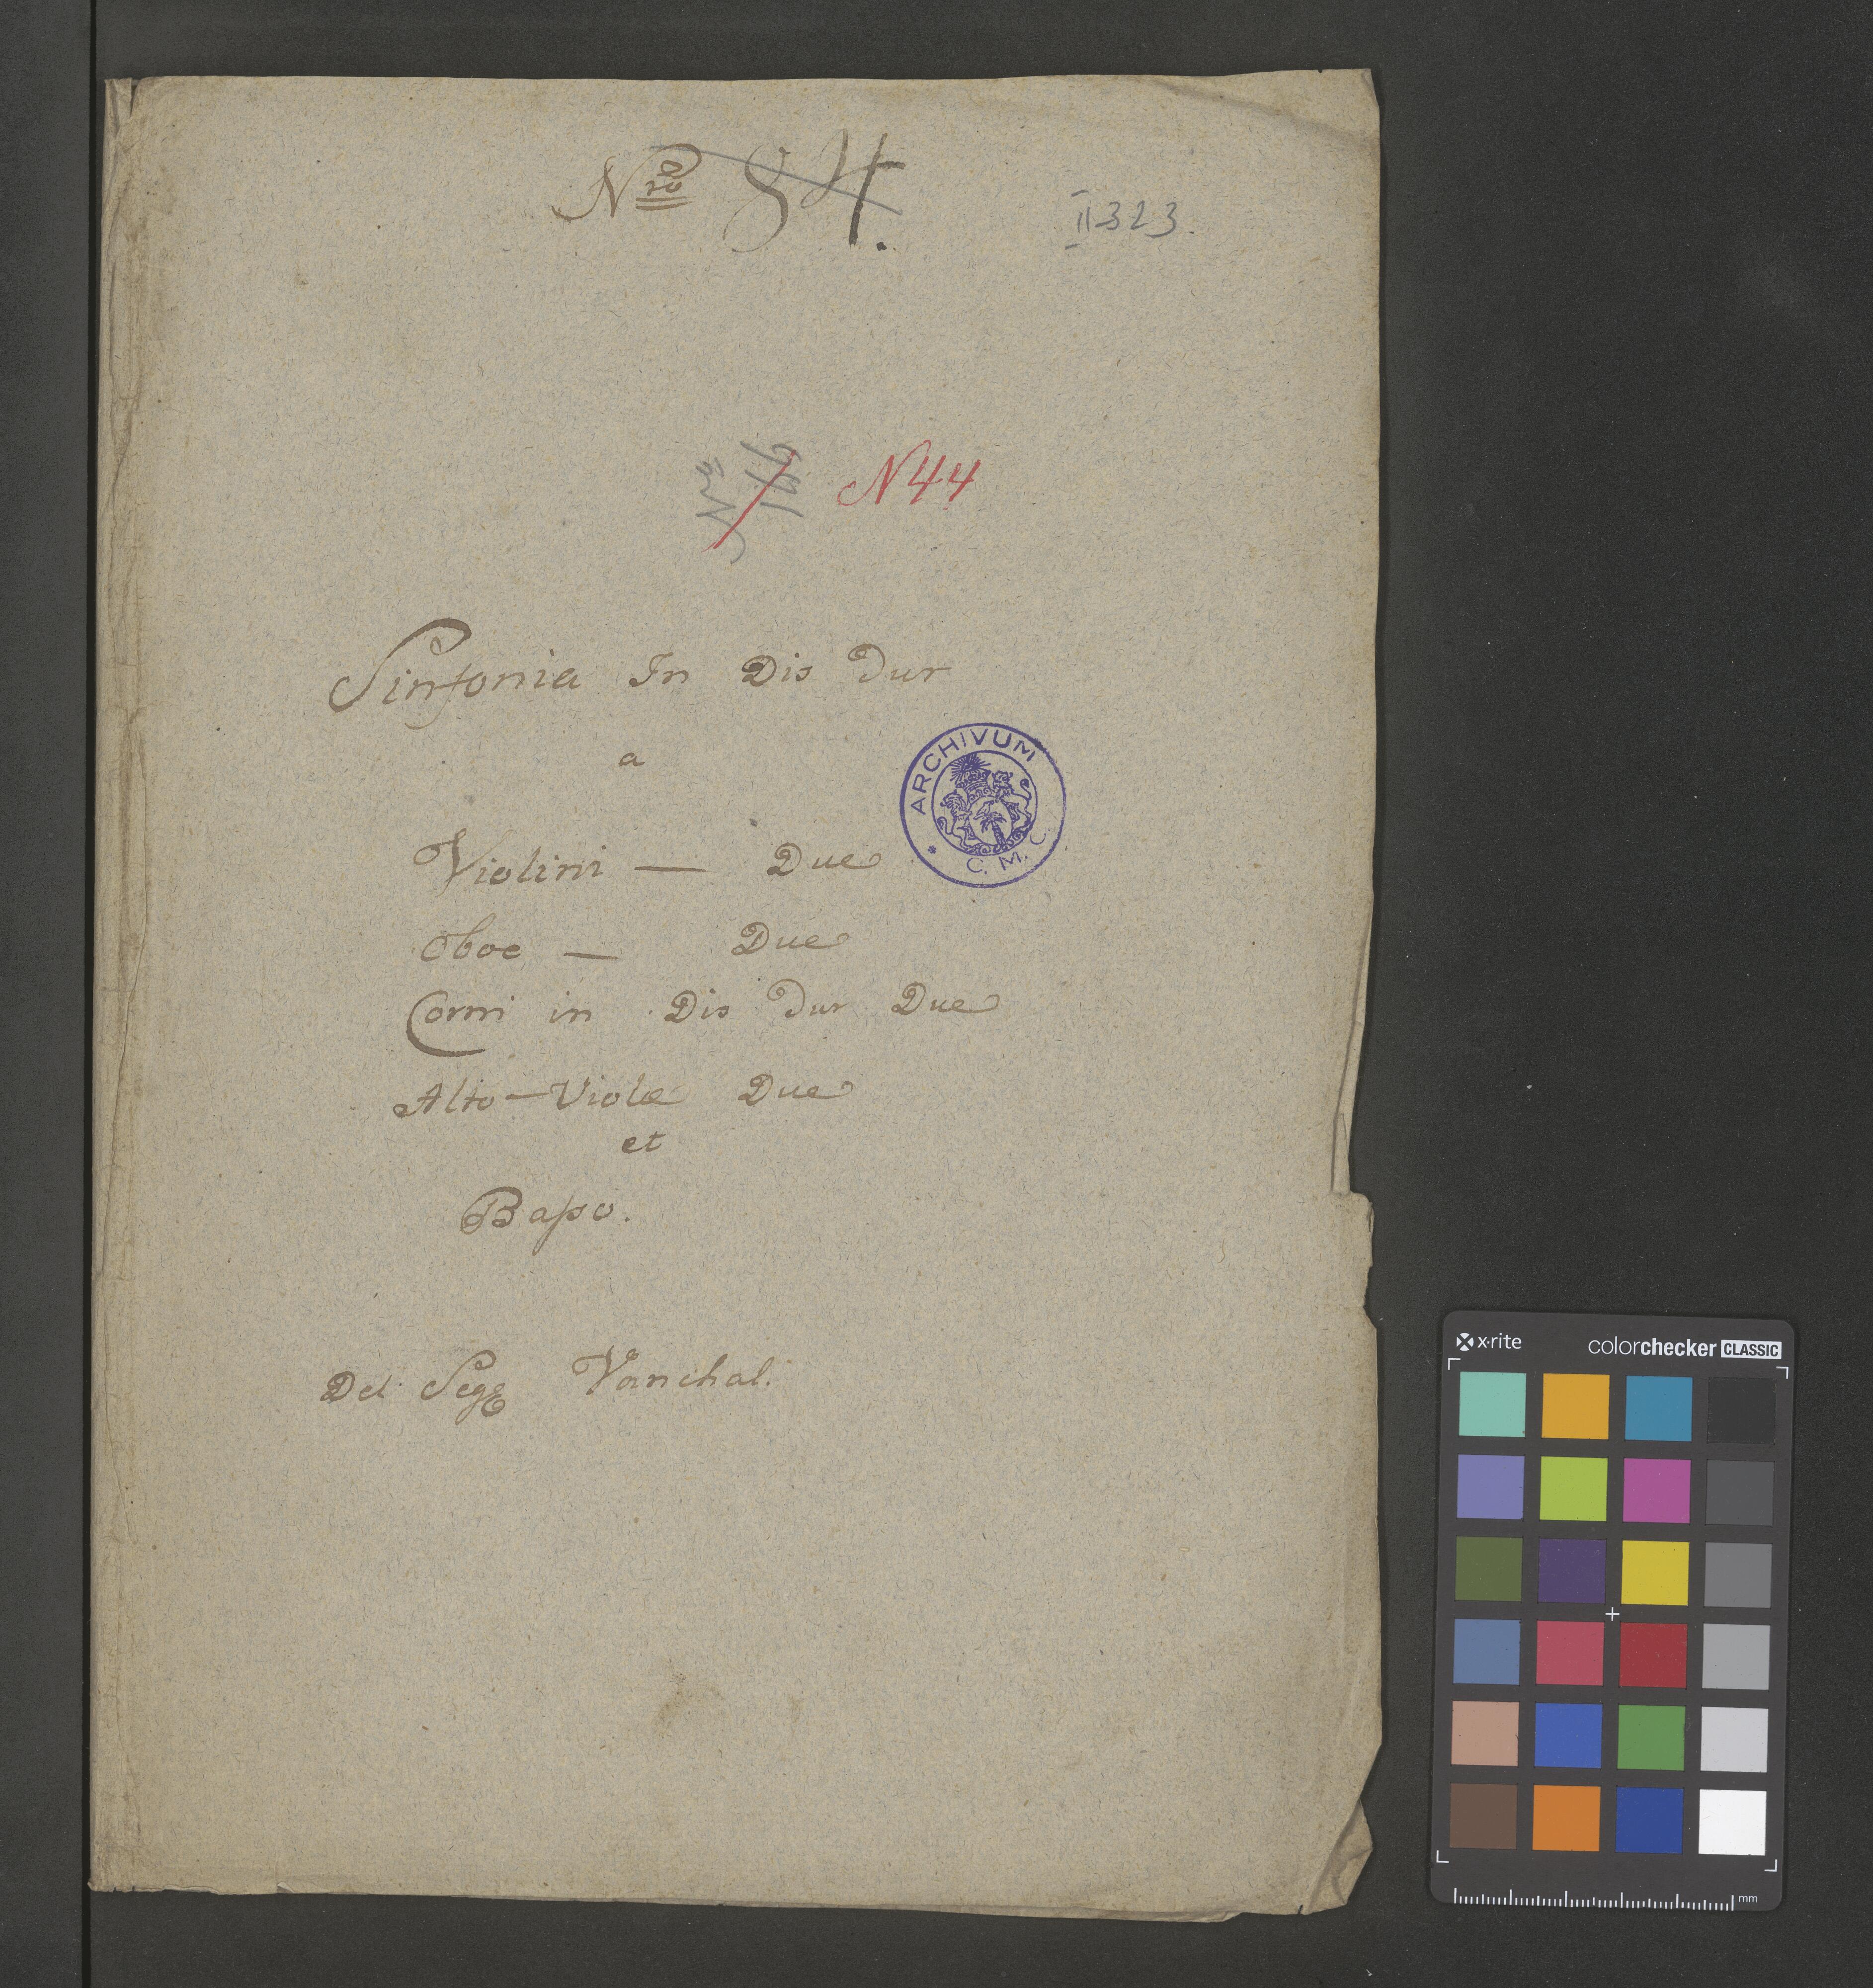 Nro 84.
II 323.
Nro 146 N 44
Sinfonia In Dis Dur
a
ARCHIVUM
* C. M. C.
Violini — Due
Oboe — Due
Corni in Dis Dur Due
Alto-Violæ Due
et
Baſso.
Del Sigε Vanchal.
x·rite colorchecker CLASSIC
mm